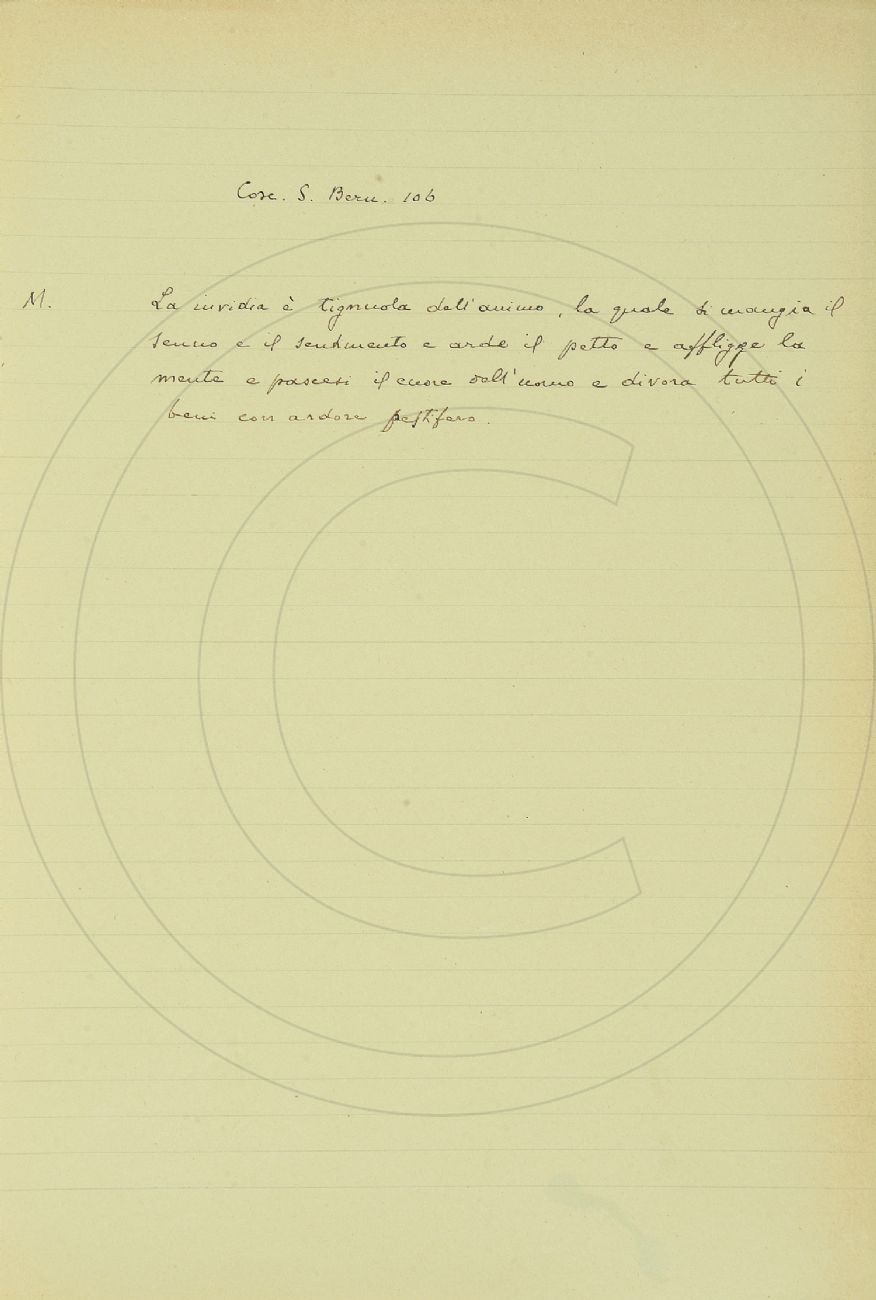 Cosc. S. Bern. 106
M. La invidia è tignuola dell'animo, la quale si mangia il
senno e il sentimento e arde il petto e affligge la
mente e pascesi il cuore dell'uomo e divora tutti i
beni con ardore pestifero.